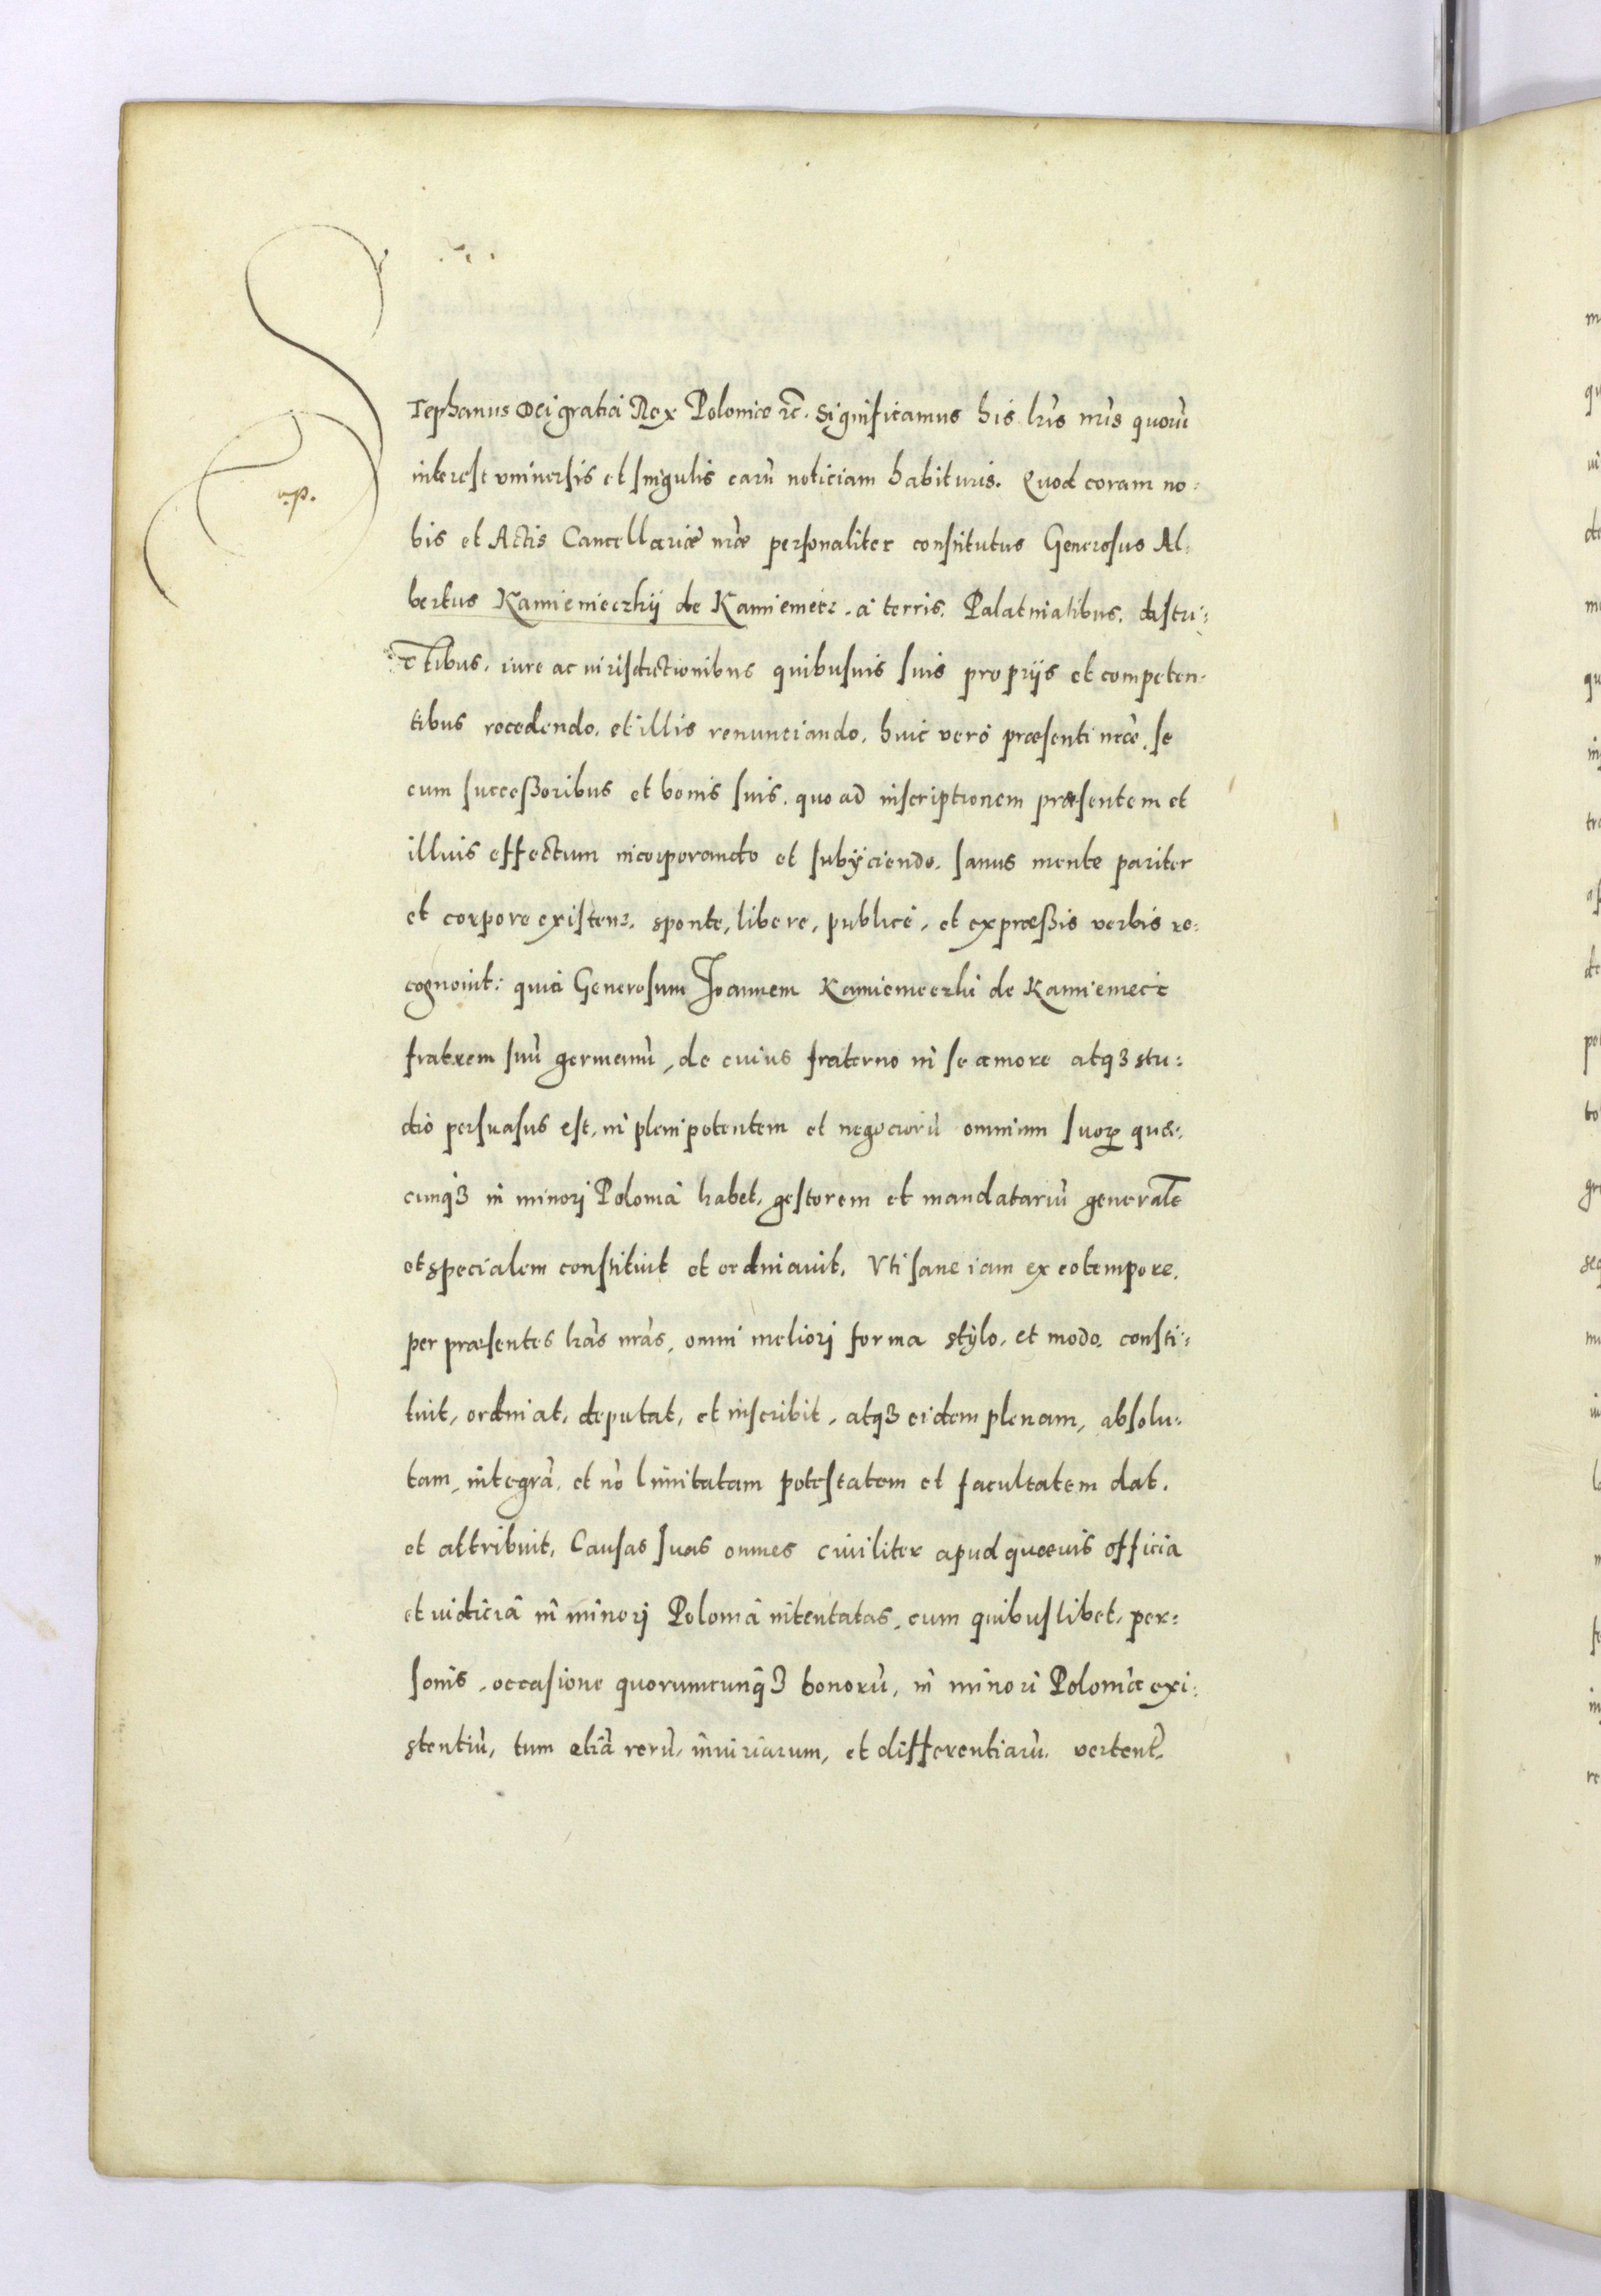 Stephanus Dei gratia Rex Poloniæ ꝛc. Significamus his lr̃is nr̃is quorũ
interest vniuersis et singulis earũ noticiam habituris. Quod coram no=
bis et Actis Cancellariæ nr̃æ personaliter constitutus Generosus Al=
bertus Kamienieczkij de Kamieniecz. a terris. Palatinatibus. distri=
ctibus. iure ac iurisdictionibus quibusuis suis proprijs et competen=
tibus recedendo. et illis renunciando. huic verò præsenti nr̃æ. se
cum successoribus et bonis suis. quo ad inscriptionem præsentem et
illius effectum incorporando et subÿciendo. sanus mente pariter
et corpore existens. sponte, libere, publicè, et expræssis verbis re=
cognouit: quia Generosum Joannem Kamienieczki de Kamieniecz
fratrem suũ germanũ, de cuius fraterno in se amore atqꝫ stu=
dio persuasus est, in plenipotentem et negociorũ omnium suoꝝ quæ=
cunqꝫ in minori Poloniâ habet, gestorem et mandatariũ generalẽ
et specialem constituit et ordinauit. Vti sane iam ex eo tempore.
per præsentes lr̃as nr̃as, omni meliori forma stÿlo. et modo. consti=
tuit, ordinat, deputat, et inscribit, atqꝫ eidem plenam, absolu=
tam, integrã, et nõ limitatam potestatem et facultatem dat.
et attribuit, Causas suas omnes ciuiliter apud quæuis officia
et iudiciã in minori Poloniâ intentatas, cum quibuslibet, per=
sonis, occasione quorumcunqꝫ bonorũ, in minori Poloniâ exi=
stentiũ, tum etiã rerũ, iniuriarum, et differentiarũ. vertent̃.
v.p.